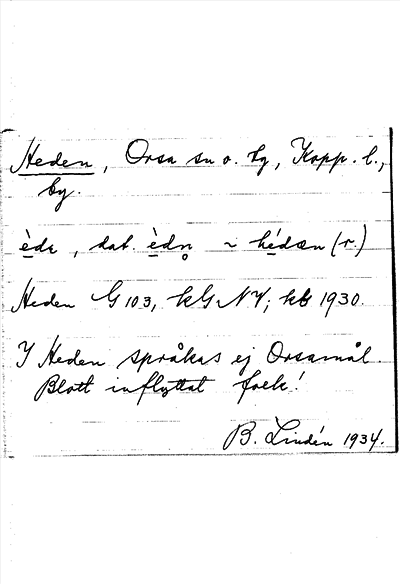 Heden, Orsa sn o. tg, Kopp. l.,
by.
ède, dat. èdn̥ ~ hédæn (r.)
Heden G 103, kG NV; kb 1930.
I Heden språkas ej Orsamål.
Blott inflyttat folk!
B. Lindén 1934.